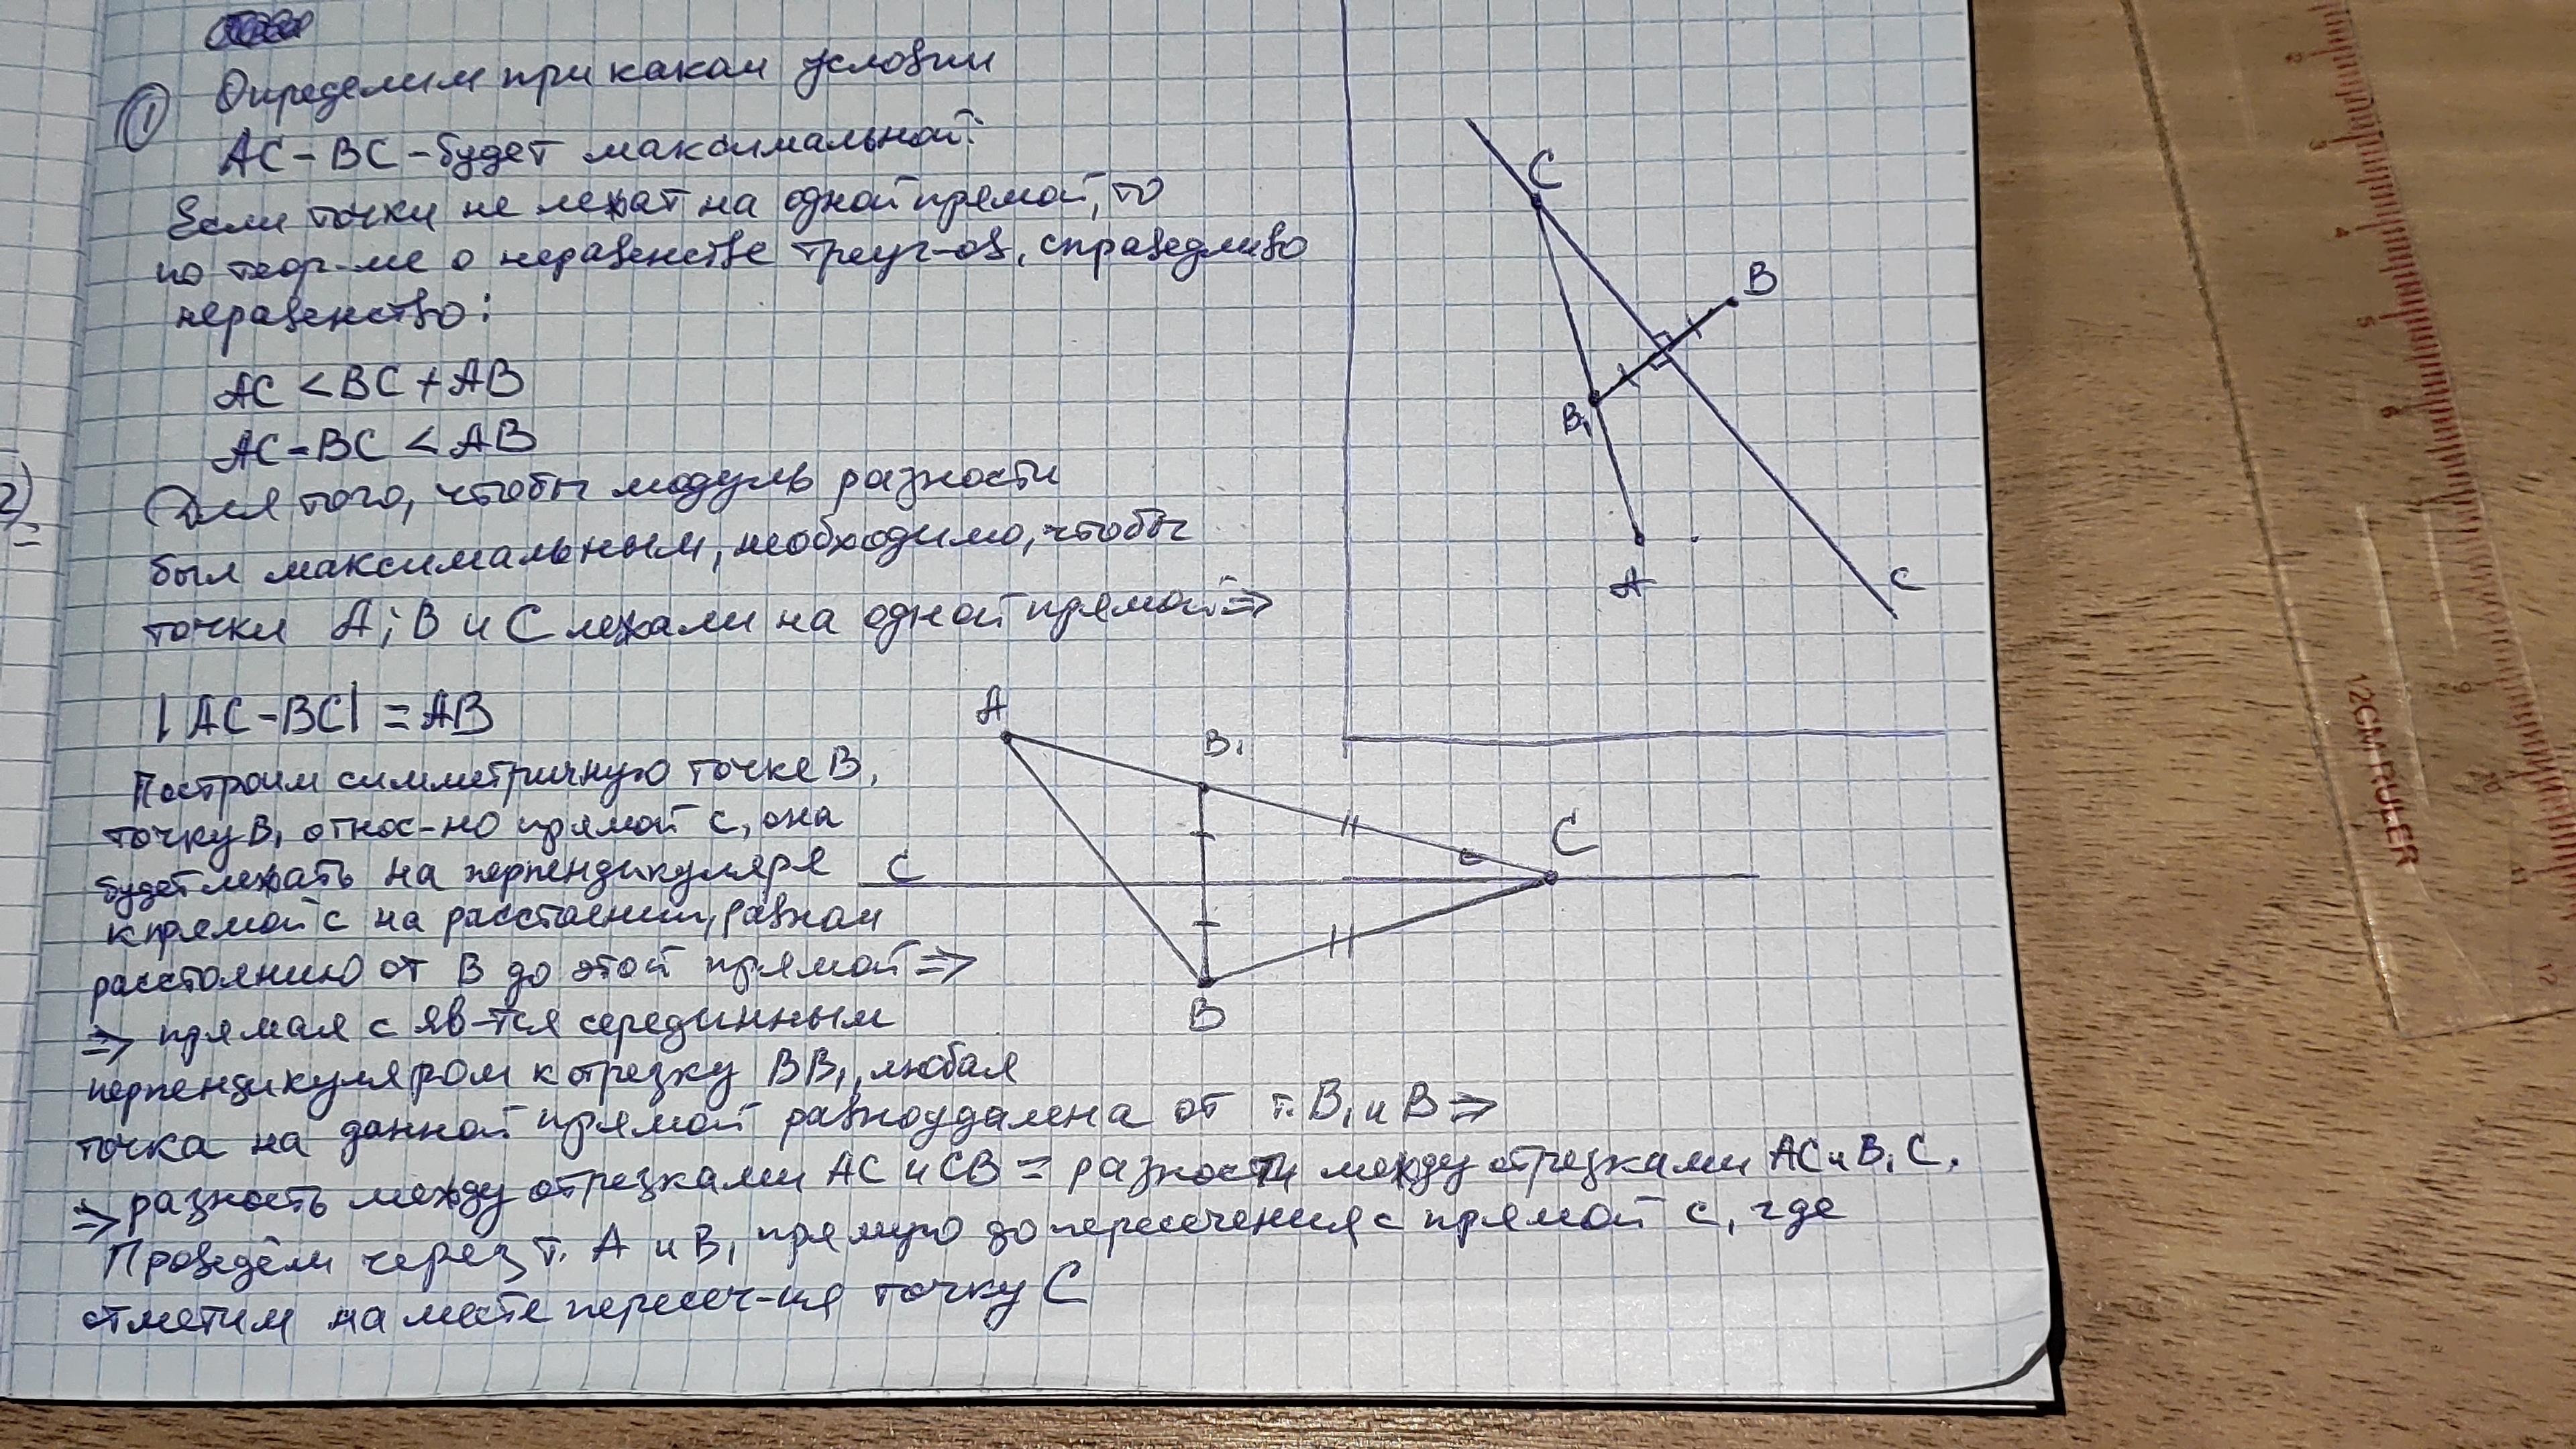 ① Определим при каком условии
AC - BC - будет максимальной:
Если точки не лежат на одной прямой, то
по теор-ме о неравенстве треуг-ов, справедливо
неравенство:
AC < BC + AB
AC - BC < AB
2)
Для того, чтобы модуль разности
был максимальным, необходимо, чтобы
точки A; B и C лежали на одной прямой ⇒
|AC - BC| = AB
Построим симметричную точке B,
точку B₁ относ-но прямой c, она
будет лежать на перпендикуляре
к прямой c на расстоянии, равном
расстоянию от B до этой прямой ⇒
⇒ прямая c яв-тся серединным
перпендикуляром к отрезку BB₁, любая
точка на данной прямой равноудалена от т. B₁ и B ⇒
⇒ разность между отрезками AC и CB = разности между отрезками AC и B₁C.
Проведём через т. A и B₁ прямую до пересечения с прямой c, где
отметим на месте пересеч-ия точку C
C
B
B₁
A
c
A
B₁
C
c
B
2
3
4
5
6
7
9
10
11
12
12CM RULER